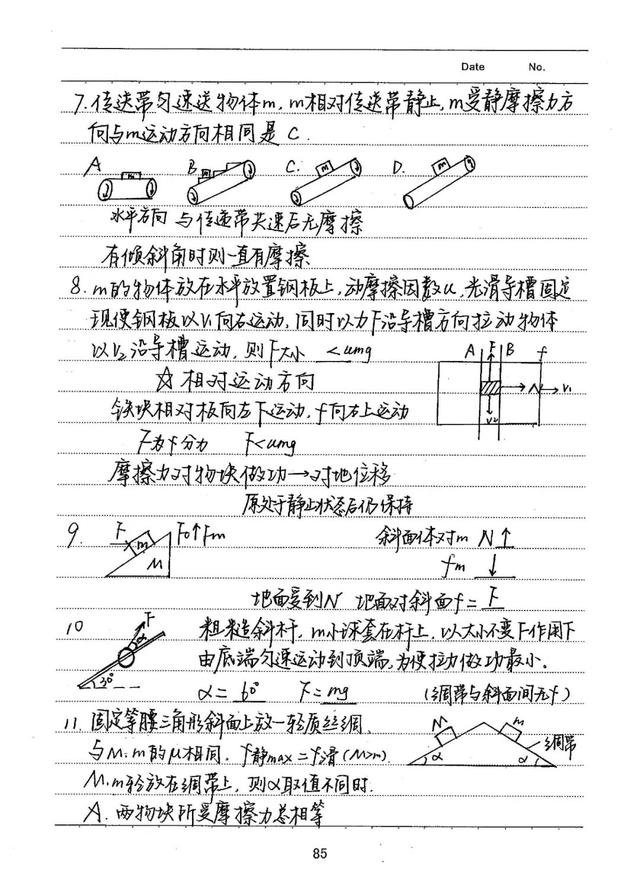 Date No.
7. 传送带匀速送物体m, m相对传送带静止, m受静摩擦力方
向与m运动方向相同是 C.
A B. C. D.
m m m m
水平方向 与传送带共速后无摩擦
有倾斜角时则一直有摩擦
8. m的物体放在水平放置钢板上, 动摩擦因数u, 光滑导槽固定
现使钢板以V₁向右运动, 同时以力F沿导槽方向拉动物体
以V₂沿导槽运动, 则F大小 <umg
A F B f
N V₁
V₂
☆ 相对运动方向
铁块相对板向左下运动, f向右上运动
F为f分力 F<umg
摩擦力对物块做功→对地位移
原处于静止状态后仍保持
9. F m M F0↑Fm 斜面体对m N↑
fm ↓
地面受到N 地面对斜面f= F
10 F α 30° 粗糙斜杆, m小球套在杆上, 以大小不变F作用下
由底端匀速运动到顶端, 为使拉力做功最小.
α= 60° F= mg (绸带与斜面间无f)
11. 固定等腰三角形斜面上放一轻质丝绸,
M m 绸带
与M.m的μ相同, f静max=f滑(M>m).
α α
M.m轻放在绸带上, 则α取值不同时.
A. 两物块所受摩擦力总相等
85